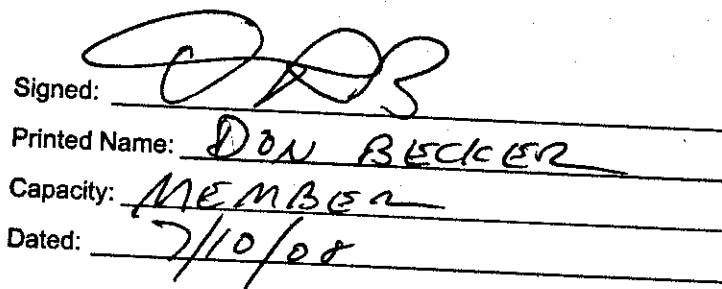 Signed:
Printed Name: DON BECKER
Capacity: MEMBER
Dated: 7/10/08